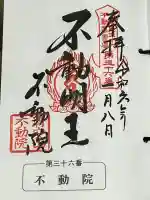 奉拝
令和六年
一月八日
不動明王
不動院
不動院
第三十六番
不動院